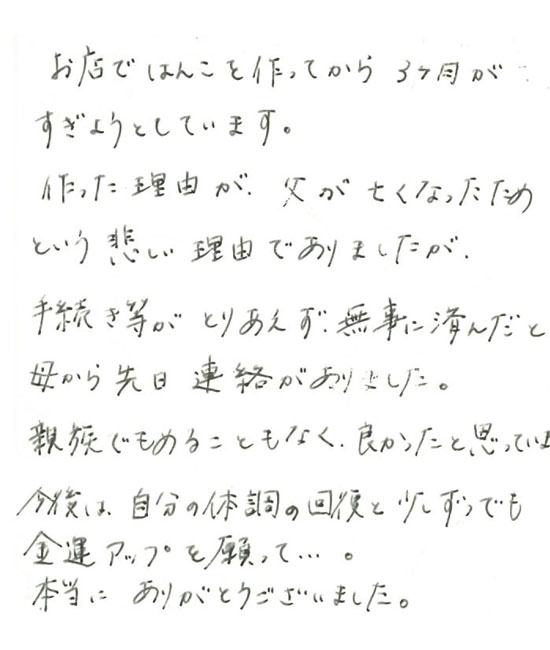 お店ではんこを作ってから 3ヶ月が
すぎようとしています。
作った理由が、父が亡くなったため
という悲しい理由でありましたが、
手続き等がとりあえず、無事に済んだと
母から先日 連絡がありました。
親族でもめることもなく、良かったと思っていま
今後は、自分の体調の回復と少しずつでも
金運アップを願って…。
本当に ありがとうございました。